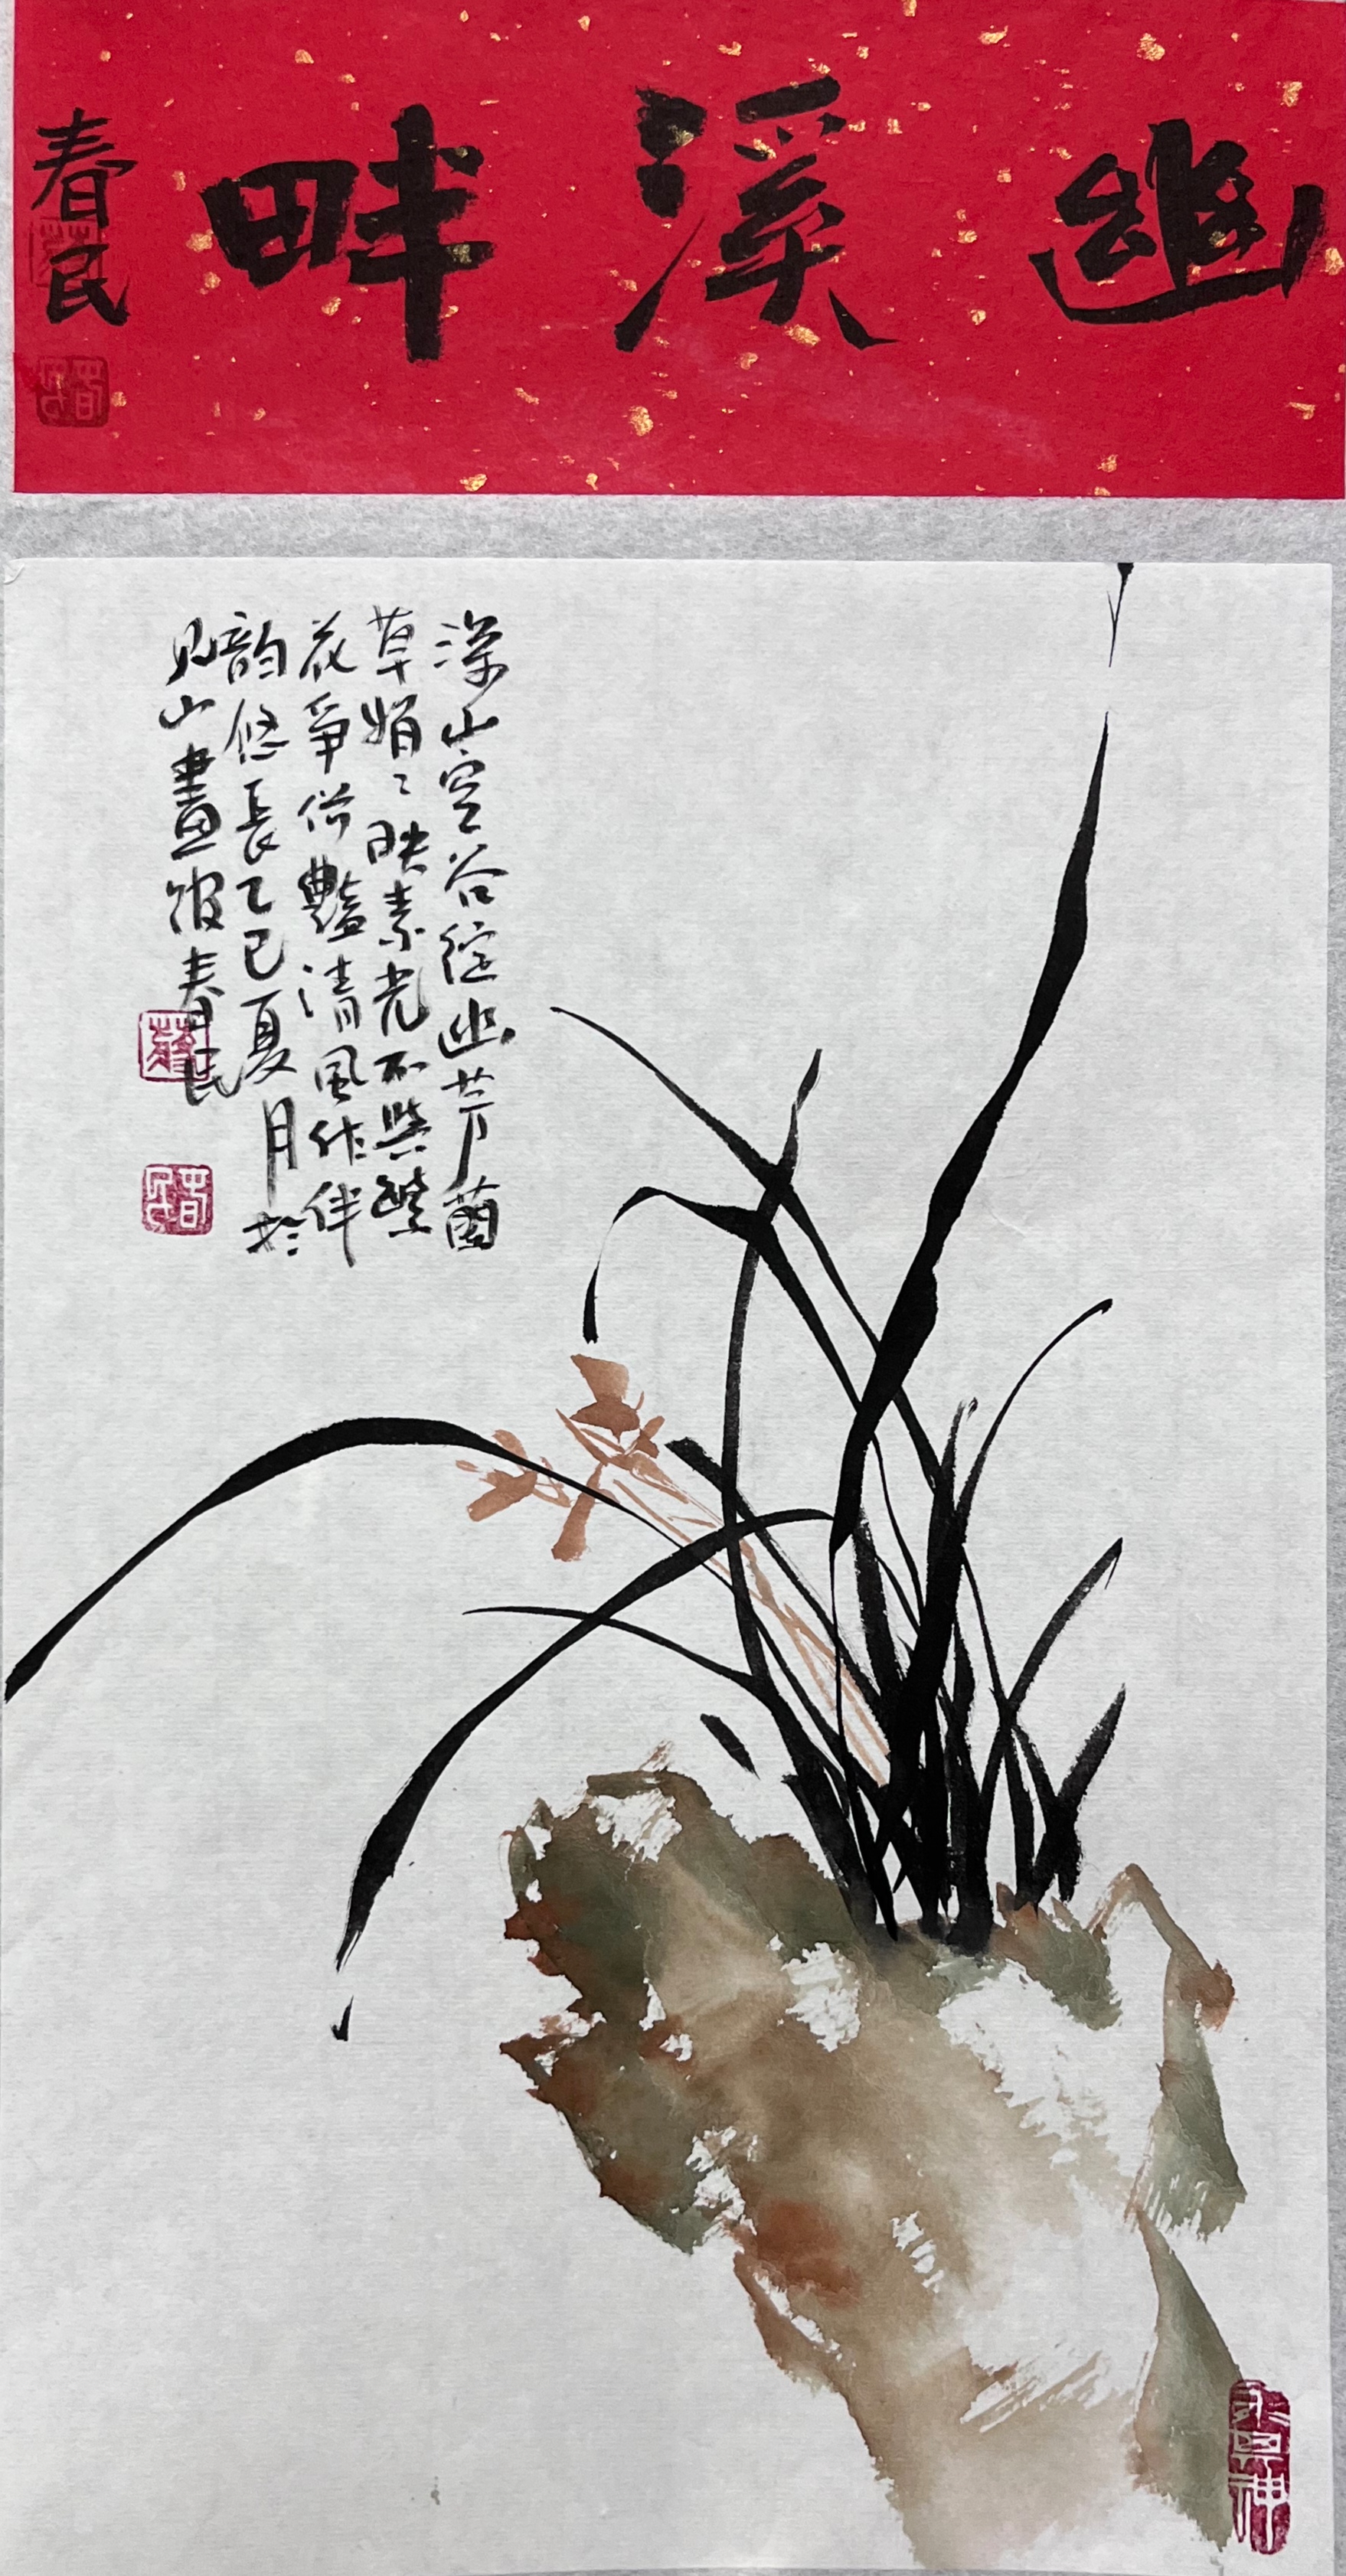 幽溪畔
春民
春民
深山空谷綻幽芳蘭
草娟々映素光不與繁
花爭俗艷清風作伴
韵悠長乙巳夏月於
見山畫館春民
春民